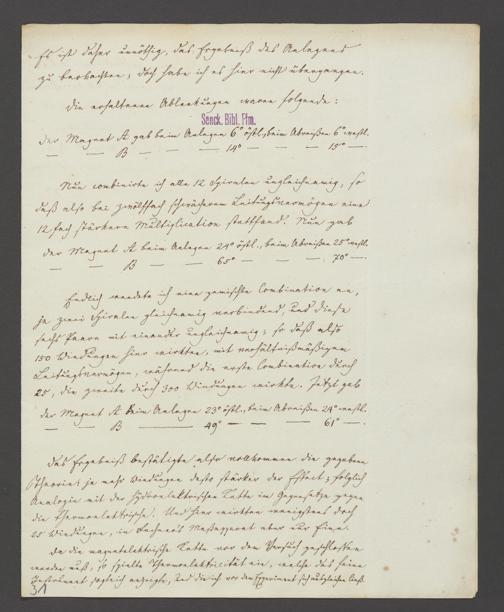 Es ist daher unnöthig, das Ergebniß des Anlegens
zu beobachten; doch habe ich es hier nicht übergangen.
Die erhaltenen Ablenkungen waren folgende:
Senck. Bibl. Ffm.
der Magnet A gab beim Anlegen 6° östl., beim Abreißen 6° westl.
— — B — — 14° — — — 15° —.
Nun combinirte ich alle 12 Spiralen ungleichnamig, so
daß also bei zwölffach schwächerem Leitungsvermögen eine
12 fach stärkere Multiplication stattfand. Nun gab
der Magnet A beim Anlegen 24° östl., beim Abreißen 25° westl.
— — B — — 65° — — — 70° —.
Endlich wendete ich eine gemischte Combination an,
je zwei Spiralen gleichnamig verbindend, und diese
sechs Paare mit einander ungleichnamig; so daß also
150 Windungen hier wirkten, mit verhältnißmäßigem
Leitungsvermögen, während die erste Combination durch
25, die zweite durch 300 Windungen wirkte. Jetzt gab
der Magnet A beim Anlegen 23° östl., beim Abreißen 24° westl.
— — B — — 49° — — — 61° —.
Das Ergebniß bestätigte also vollkommen die gegebene
Theorie: je mehr Windungen desto stärker der Effect; folglich
Analogie mit der hydroelektrischen Kette im Gegensatze gegen
die thermoelektrische. Und hier wirkten wenigstens doch
25 Windungen, in Fechners Meßapparat aber nur Eine.
Da die magnetelektrische Kette vor dem Versuch geschlossen
werden muß, so spielte Thermoelektricität ein, welche das feine
Instrument sogleich anzeigte, und die ich vor dem Experiment sich ausgleichen ließ.
31